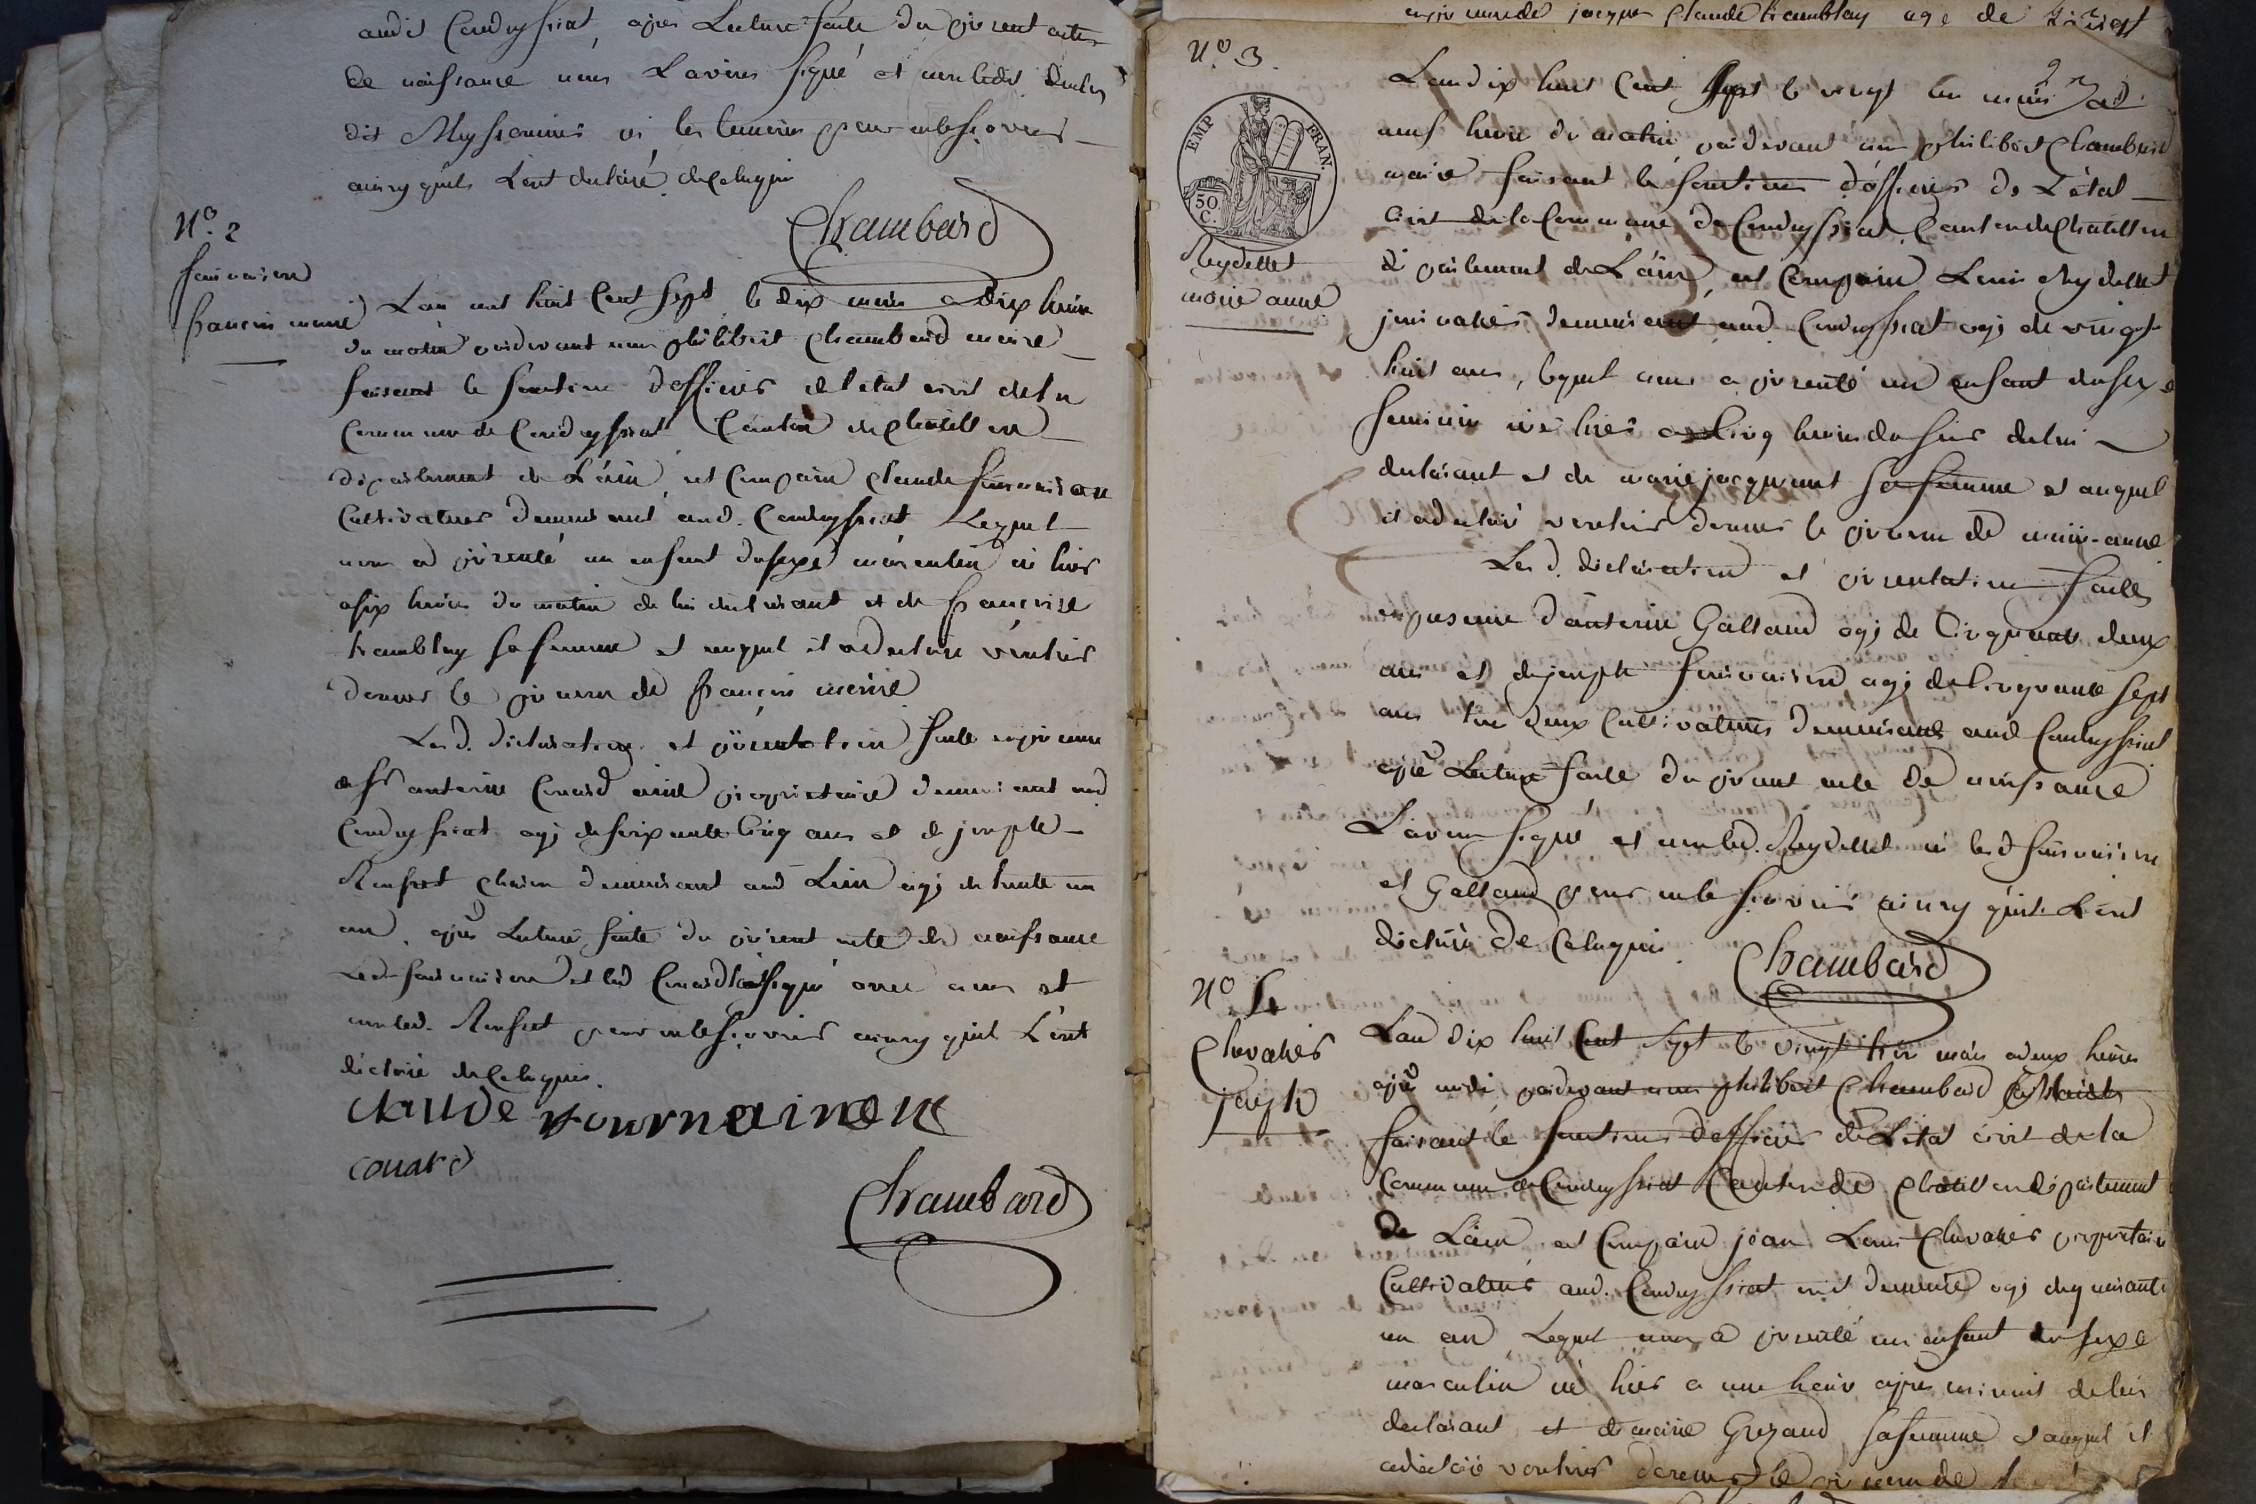 audit Condeyssiat, après Lecture faite du présent acte
de naissance nous L'avons signé et non ledit
dit Meyssonnier ni les temoins pour ne le sçavoir
ainsy qu'ils L'ont declaré de ce Requis
Chambard
N.° 2
fournaison
françois marie
L'an mil huit Cent Sept le dix mars a dix heures
du matin pardevant nous philibert Chambard maire
faisant les fonctions d'officier de l'état civil de la
Commune de Condeyssiat Canton de Chatillon
département de L'ain, est Comparu Claude fournaison
Cultivateur demeurant aud. Condeyssiat Lequel
nous a présenté un enfant du sexe masculin né hier
a six heures du matin de lui declarant et de françoise
tremblay sa femme et auquel il a declaré vouloir
donner le prenom de françois marie
Lesd. declaration et présentation faite en présence
de Sr antoine Conard ainé proprietaire demeurant aud.
Condeyssiat agé de soixante cinq ans et de joseph
demeurant aud. Lieu agé de trente un
an, après Lecture faite du présent acte de naissance
Led. fournaison et led. Conard l'ont signé avec nous et
non led. pour ne le sçavoir ainsy qu'il L'ont
declaré de ce Requis.
Claude fournaison
Conard
Chambard
en presence de jacques Claude tremblay age de
N.° 3.
EMP FRAN.
50 C.
Reydellet
marie anne
L'an dix huit Cent Sept le vingt un mars
neuf heure du matin pardevant nous philibert Chambard
maire faisant les fonctions d'officier de L'état
Civil de la Commune de Condeyssiat Canton de Chatillon
département de L'ain, est Comparu Louis Reydellet
journalier demeurant aud. Condeyssiat agé de vingt
huit ans, lequel nous a présenté un enfant du sexe
feminin née hier a Cinq heures du soir de lui
declarant et de marie jacquemet sa femme et auquel
il a declaré vouloir donner le prenom de marie-anne
Lesd. declaration et présentation faites
en presence d'antoine Galland agé de Cinquante deux
ans et de joseph fournaison agé de Cinquante Sept
ans tous deux Cultivateurs demeurants aud Condeyssiat
après Lecture faite du présent acte de naissance
L'avons signé et non led. Reydellet ni lesd fournaison
et Galland pour ne le sçavoir ainsy qu'ils L'ont
declaré de ce Requis.
Chambard
N.° 4
Chevalier
joseph
L'an dix huit Cent Sept le vingt trois mars a deux heures
après midi, pardevant nous philibert Chambard maire
faisant les fonctions d'officier de L'état civil de la
Commune de Condeyssiat Canton de Chatillon département
de L'ain est Comparu jean Louis Chevalier proprietaire
Cultivateur aud. Condeyssiat y demeure agé de quarante
un an Lequel nous a présenté un enfant du sexe
masculin né hier a une heure après minuit de lui
declarant et de marie Grezaud sa femme et auquel il
a declaré vouloir donner le prenom de